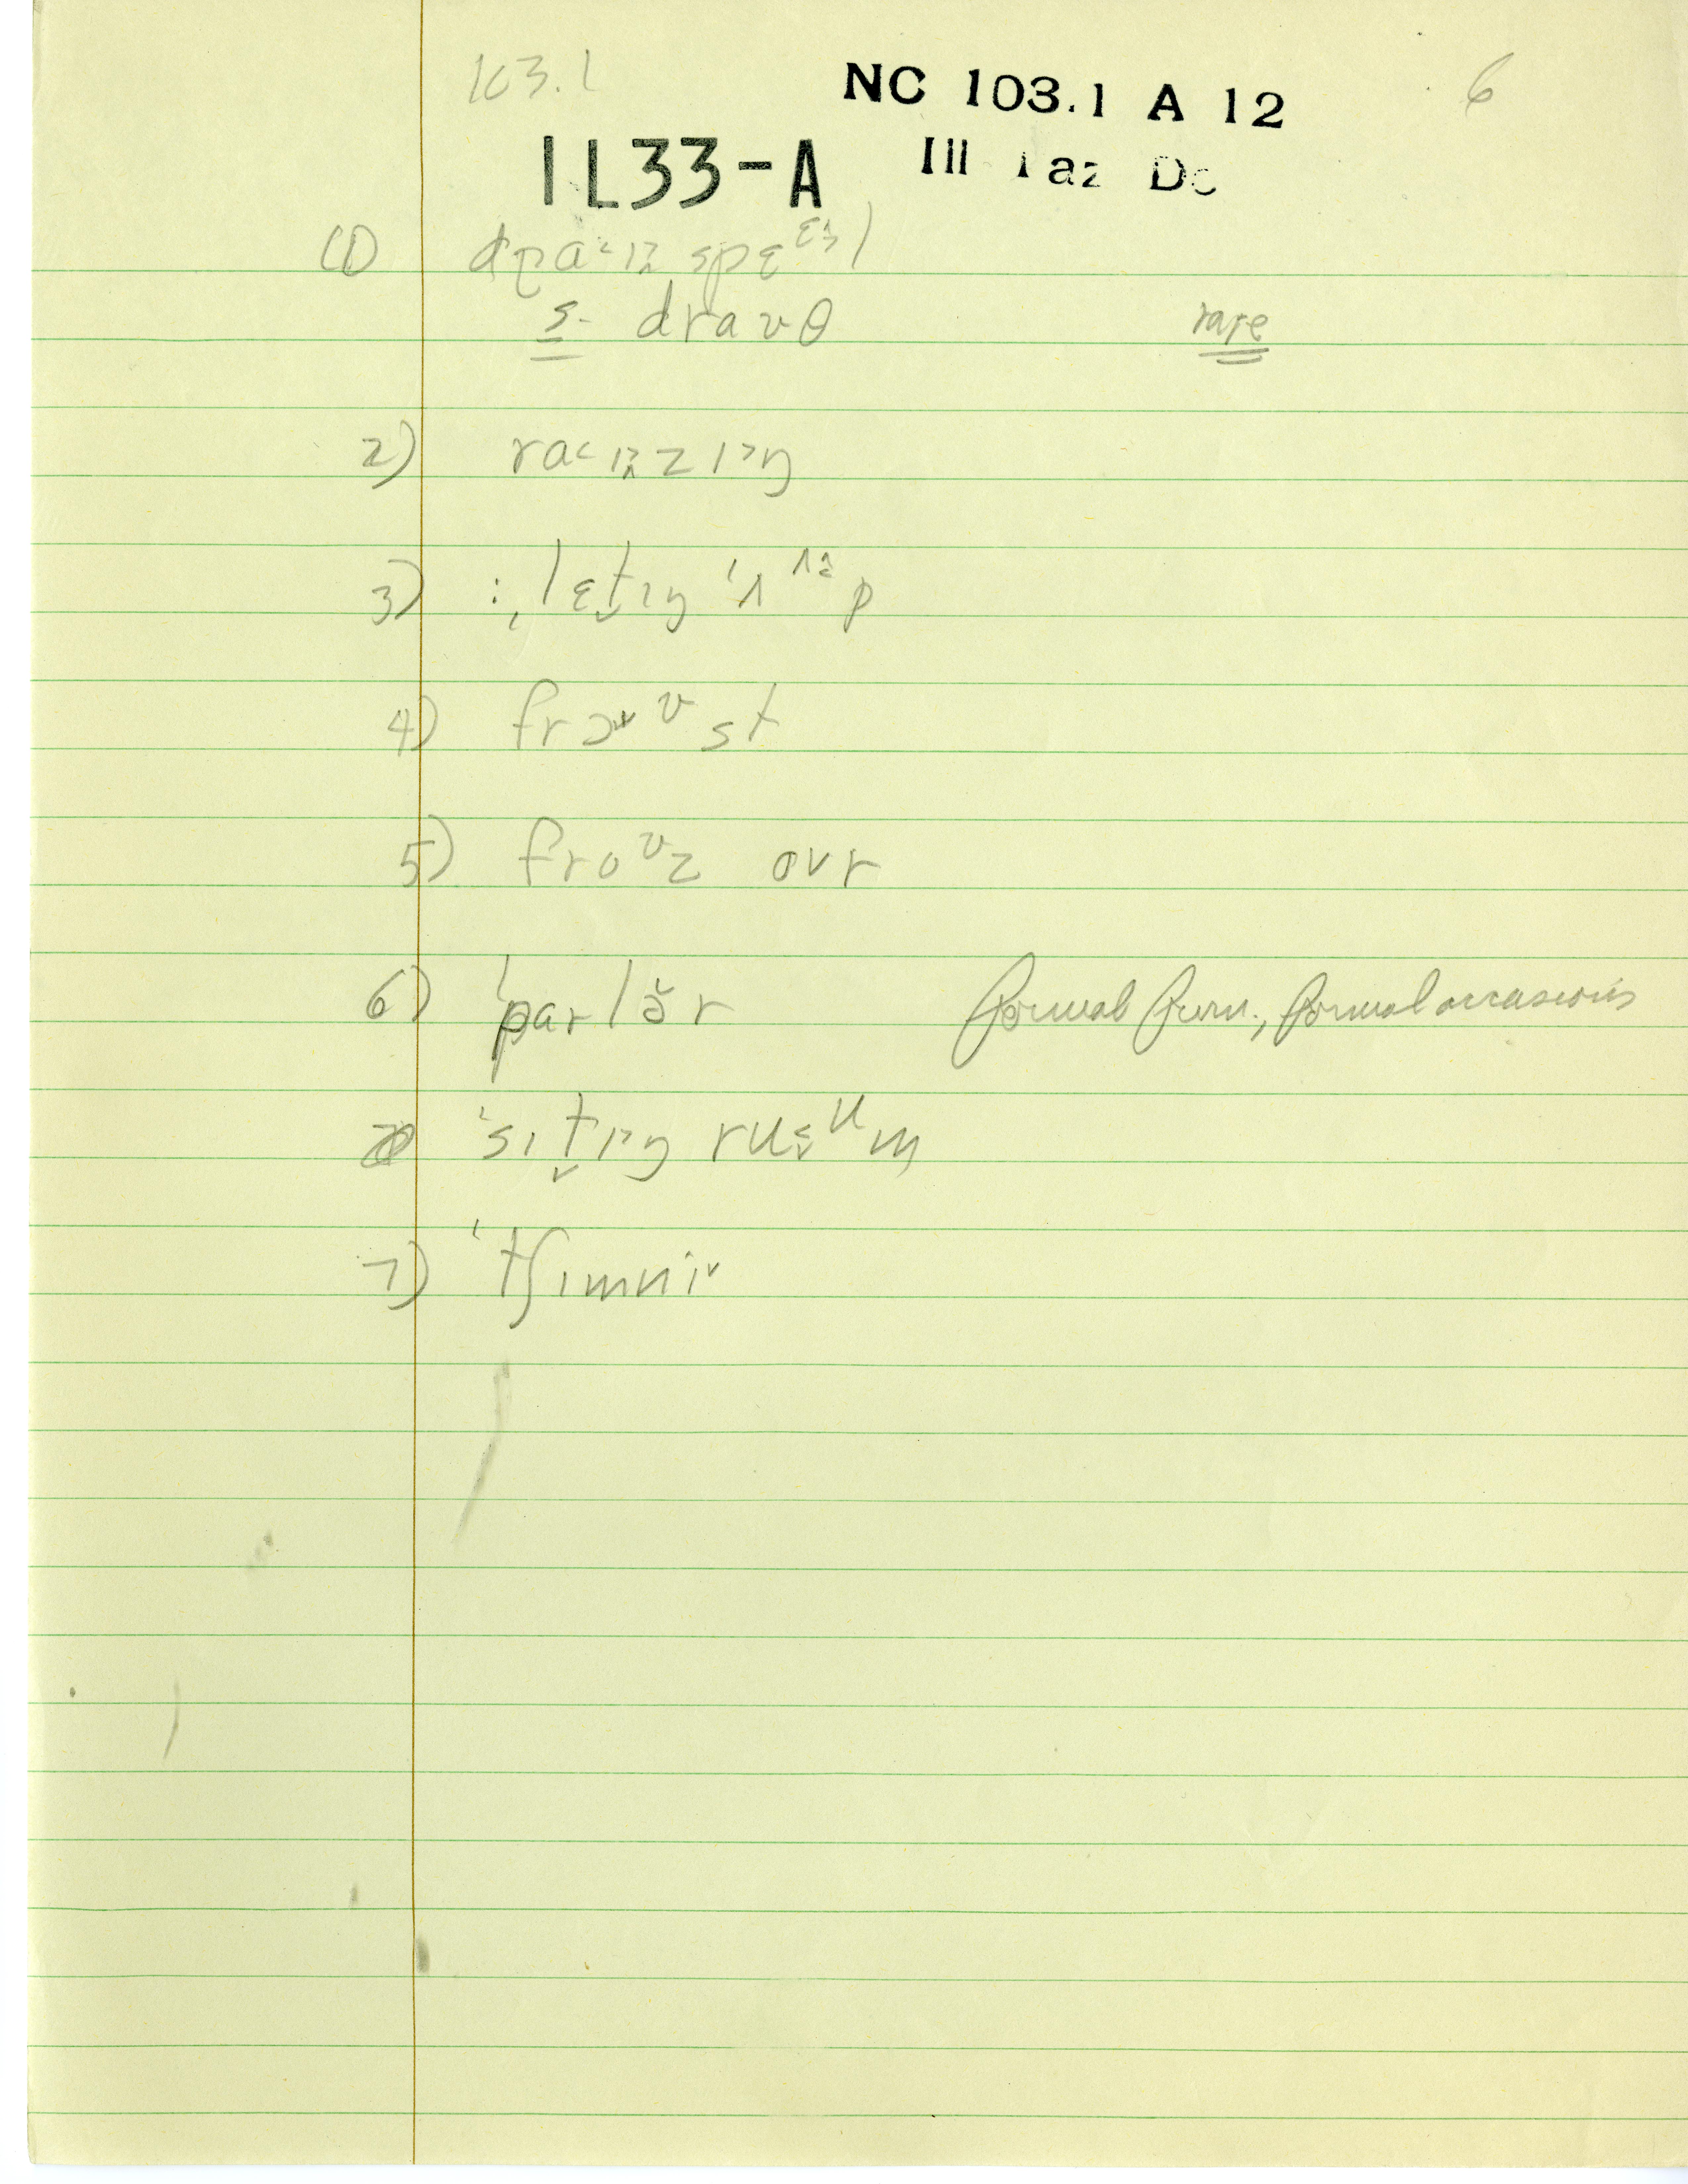 103.1 NC 103.1 A 12 6
1L33-A Ill Taz Do
(1) draɪ spɛl
s- draʊθ rare
2) raɪzɪŋ
3) ˌlɛt̬ɪŋ ˈʌᴧp
4) frɔᶷst
5) froᶷz ovr
6) ˈparlə̆r formal furn., formal occasions
ˈsɪt̬ɪŋ ruᵘm
7) ˈtʃɪmni